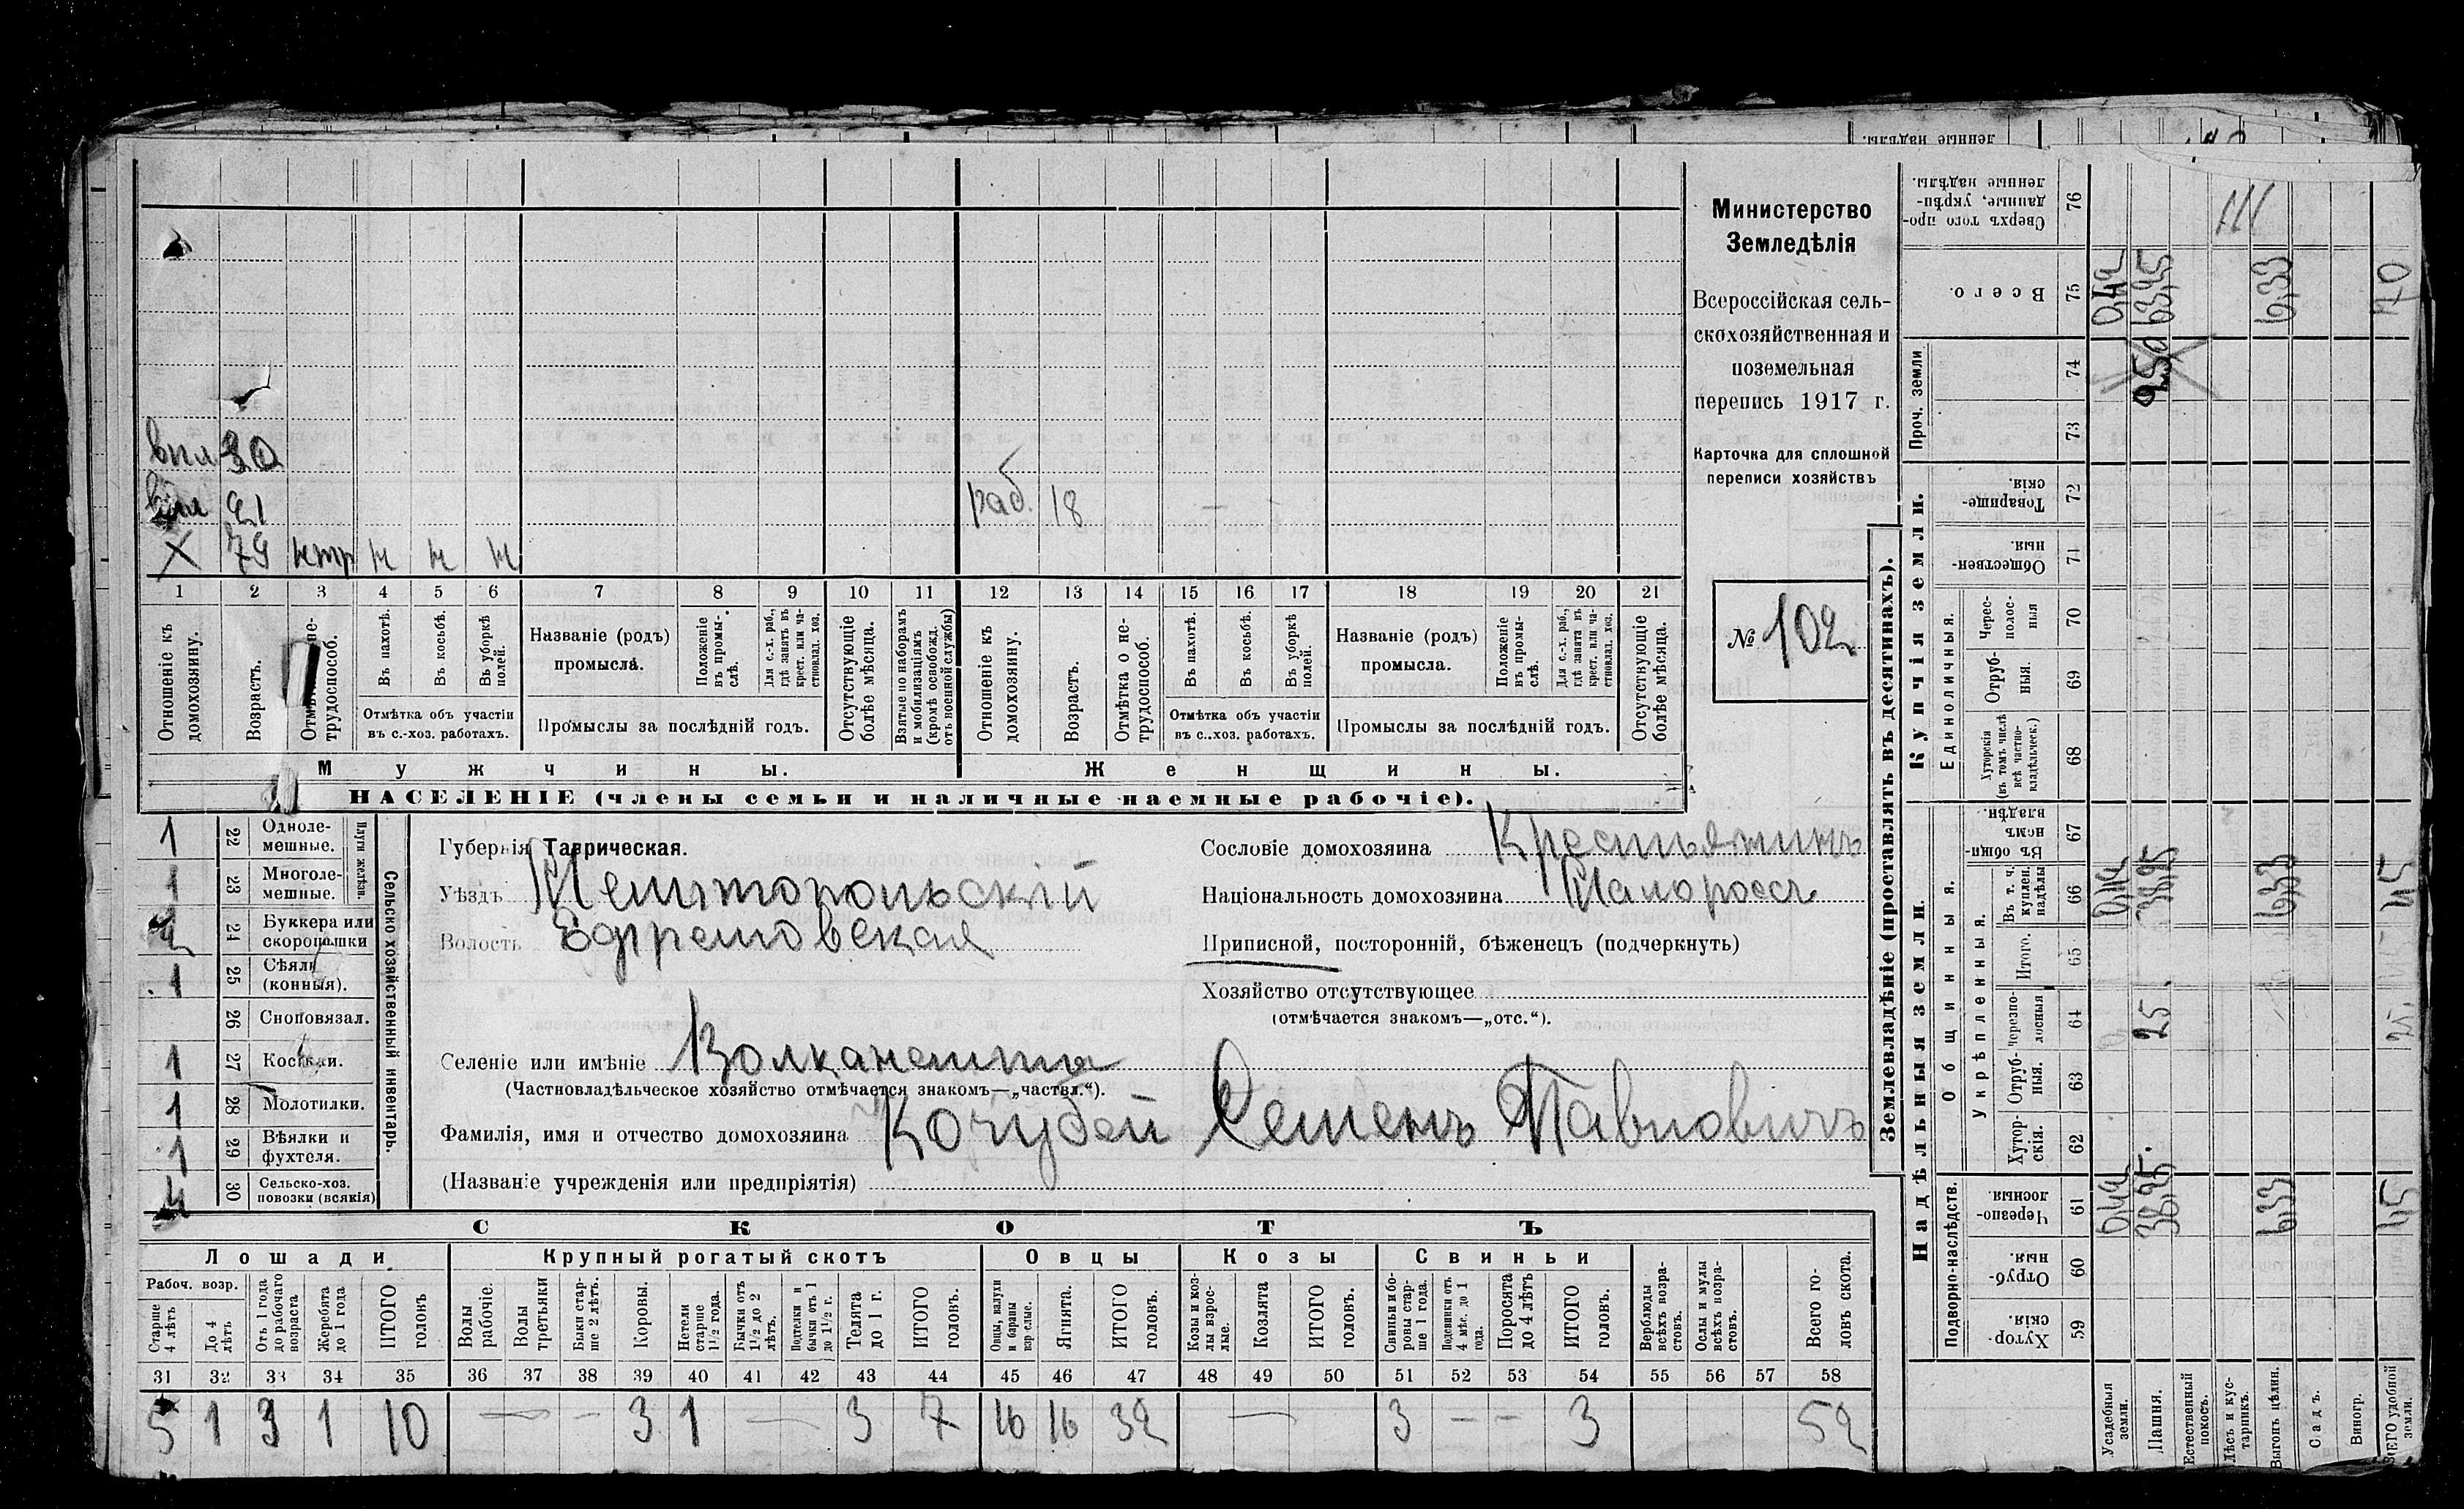 Министерство
Земледѣлія
Всероссійская сель-
скохозяйственная и
поземельная
перепись 1917 г.
Карточка для сплошной
переписи хозяйствъ
№ 102
вил. 30
вил 21 раб. 18
X 79 нтр н н н
1 2 3 4 5 6 7 8 9 10 11 12 13 14 15 16 17 18 19 20 21
Отношеніе къ домохозяину.
Возрастъ.
Отмѣтка о не-трудоспособ.
Въ пахотѣ.
Въ косьбѣ.
Въ уборкѣ полей.
Отмѣтка объ участіи
въ с.-хоз. работахъ.
Названіе (родъ)
промысла.
Положеніе въ промы-слѣ.
Для с.-х. раб., гдѣ занятъ въ крест. или ча-стновлад. хоз.
Промыслы за послѣдній годъ.
Отсутствующіе болѣе мѣсяца.
Взятые по наборамъ и мобилизаціямъ (кромѣ освобожд. отъ военной службы)
Отношеніе къ домохозяину.
Возрастъ.
Отмѣтка о не-трудоспособ.
Въ пахотѣ.
Въ косьбѣ.
Въ уборкѣ полей.
Отмѣтка объ участіи
въ с..хоз. работахъ.
Названіе (родъ)
промысла.
Положеніе въ промы-слѣ.
Для с.-х. раб., гдѣ занята въ крест. или ча-стновлад. хоз.
Промыслы за послѣдній годъ.
Отсутствующіе болѣе мѣсяца.
Мужчины.
Женщины.
НАСЕЛЕНІЕ (члены семьи и наличные наемные рабочіе).
Сельско хозяйственный инвентарь.
Плуги желѣзн.
1 22 Одноле-мешные.
1 23 Многоле-мешные.
2 24 Буккера или скоропашки
1 25 Сѣялки (конныя).
26 Сноповязал.
1 27 Косилки.
1 28 Молотилки.
1 29 Вѣялки и фухтеля.
4 30 Сельско-хоз. повозки (всякія)
Губернія Таврическая.
Уѣздъ Мелитопольскій
Волость Ефремовская
Селеніе или имѣніе Волканешты
(Частновладѣльческое хозяйство отмѣчается знакомъ—„частвл.“).
Фамилія, имя и отчество домохозяина Кочубей Семенъ Павловичъ
(Названіе учрежденія или предпріятія)
Сословіе домохозяина Крестьянинъ
Національность домохозяина Малороссъ
Приписной, посторонній, бѣженецъ (подчеркнуть)
Хозяйство отсутствующее
(отмѣчается знакомъ—„отс.“).
СКОТЪ
Лошади
Крупный рогатый скотъ
Овцы
Козы
Свиньи
Рабоч. возр.
Старше 4 лѣтъ
До 4 лѣтъ
Отъ 1 года до рабочаго возраста
Жеребята до 1 года
ИТОГО головъ
Волы рабочіе.
Волы третьяки
Быки стар-ше 2 лѣтъ.
Коровы.
Нетели старше 1½ года.
Бычки отъ 1½ до 2 лѣтъ.
Подтелки и бычки отъ 1 до 1½ г.
Телята до 1 г.
ИТОГО головъ.
Овцы, валухи и бараны взрослые.
Ягнята.
ИТОГО головъ.
Козы и коз-лы взрос-лые.
Козлята
ИТОГО головъ.
Свиньи и бо-ровы стар-ше 1 года.
Подсвинки отъ 4 мѣс. до 1 года.
Поросята до 4 лѣтъ
ИТОГО головъ.
Верблюды всѣхъ возра-стовъ.
Ослы и мулы всѣхъ возра-стовъ.
Всего го-ловъ скота.
31 32 33 34 35 36 37 38 39 40 41 42 43 44 45 46 47 48 49 50 51 52 53 54 55 56 57 58
5 1 3 1 10 — — 3 1 — 3 7 16 16 32 — 3 — — 3 52
Землевладѣніе (проставлять въ десятинахъ).
Надѣльныя земли.
Купчія земли.
Проч. земли
Подворно-наслѣдств.
Общинныя.
Укрѣпленныя.
Единоличныя.
Хутор-скія. 59
Отруб-ныя. 60
Черезпо-лосныя. 61
Хутор-скія. 62
Отруб-ныя. 63
Черезпо-лосныя 64
Итого. 65
Въ т. ч. куплен. надѣлы 66
Въ общин-номъ владѣн. 67
Хуторскія (въ томъ числѣ всѣ частно-владѣльческ.) 68
Отруб-ныя. 69
Черес-полос-ныя 70
Обществен-ныя. 71
Товарище-скія. 72
73
74
Всего. 75
Сверхъ того про-данные, укрѣп-ленные надѣлы. 76
Усадебныя земли.
Пашня.
Естественный покосъ.
Лѣсъ и кус-тарникъ.
Выгонъ цѣлин.
Садъ.
Виногр.
ВСЕГО удобной земли.
0,42 38,25 6,33 45
25 25
0,42 38,25 6,33 45
0,42 63,25 6,33 70
ленные надѣлы.